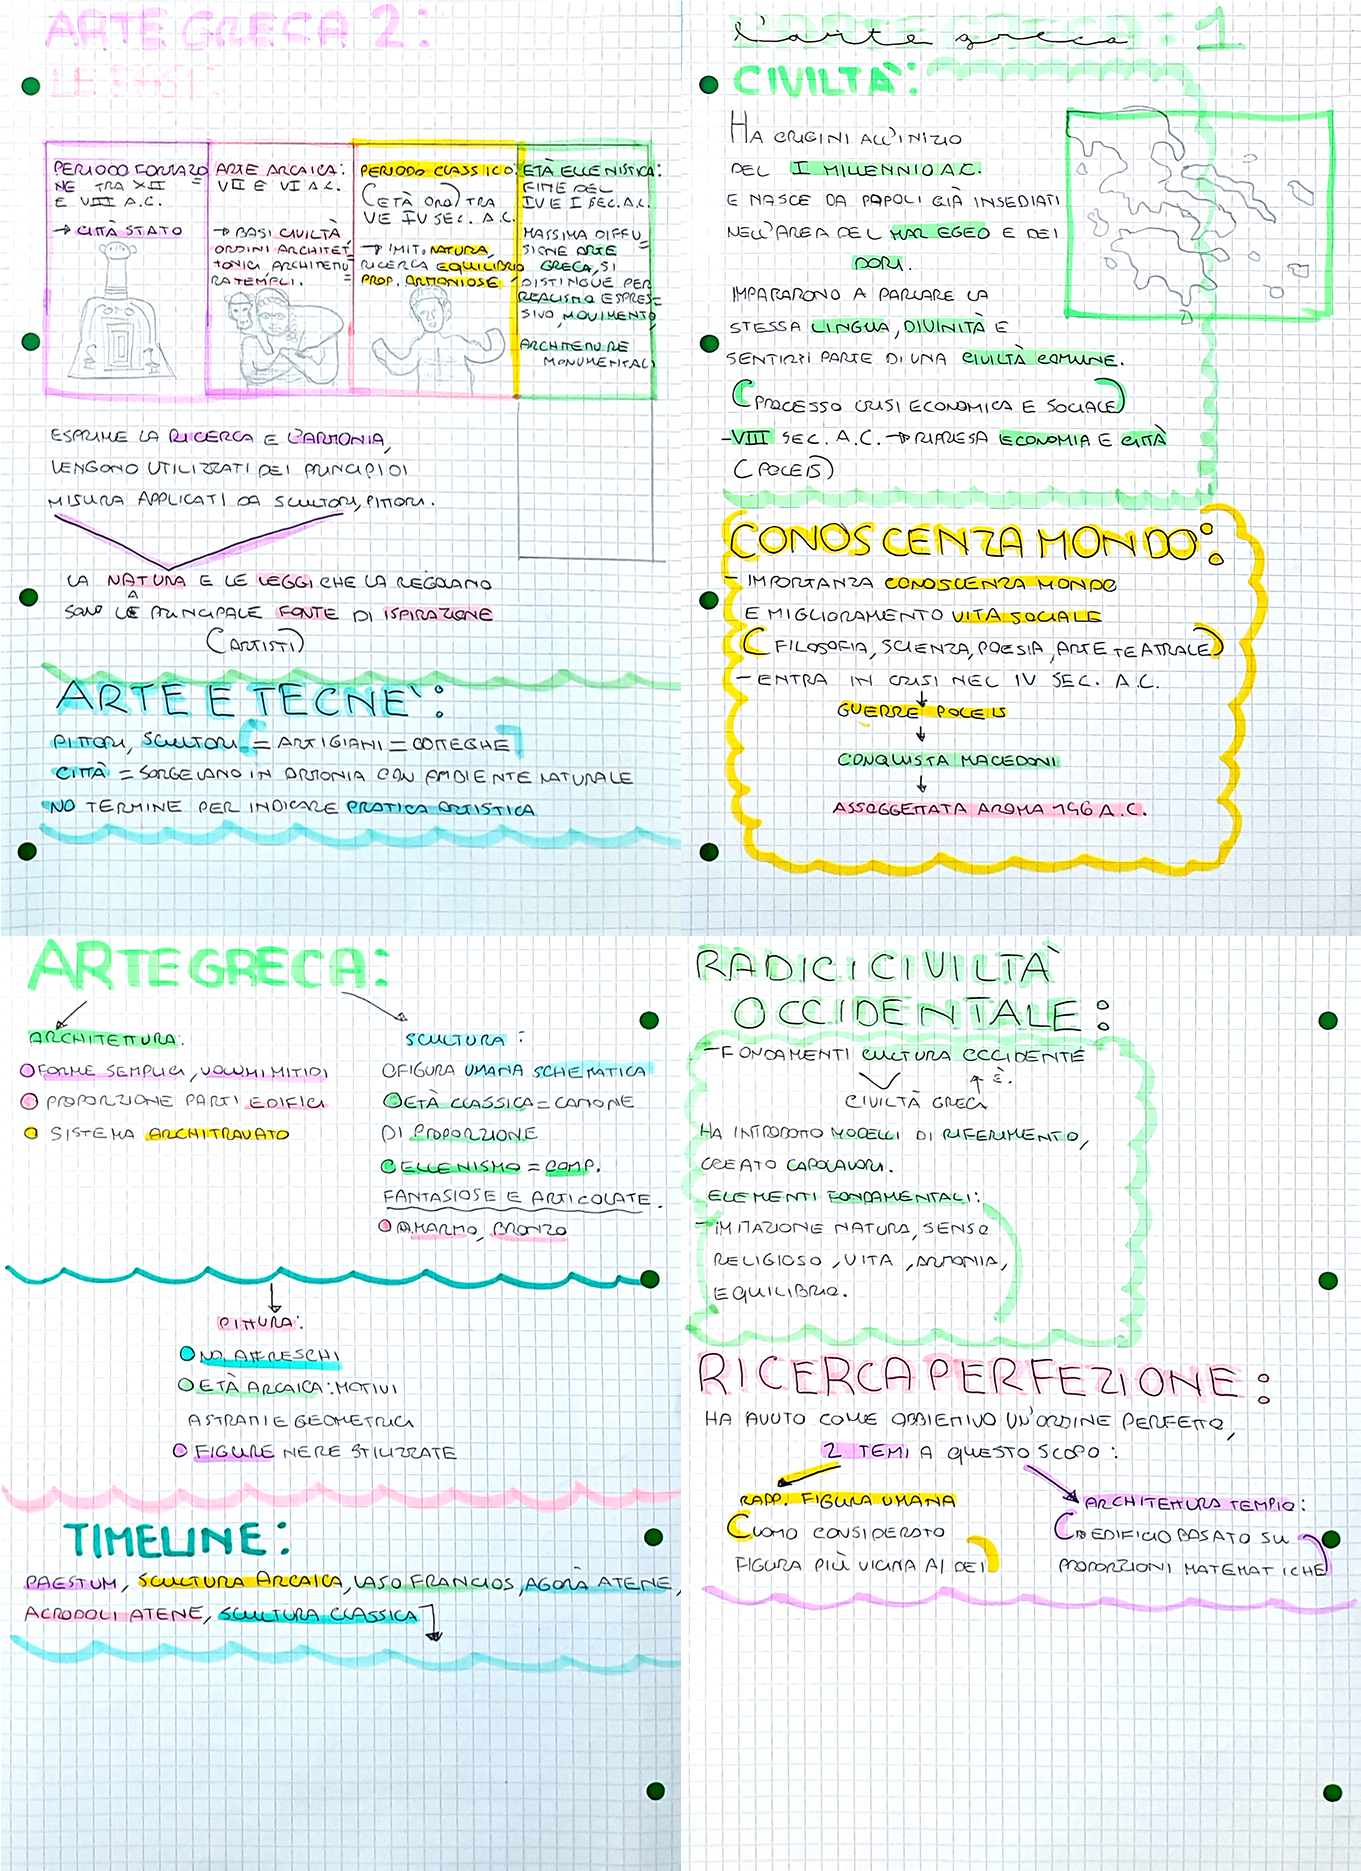 ARTE GRECA 2:
LE FASI:
PERIODO FORMAZIO
NE TRA XII
E VIII A.C.
→ CITTÀ STATO
ARTE ARCAICA:
VII E VI A.C.
→ BASI CIVILTÀ
ORDINI ARCHITET
TONICI, ARCHITETTU
RA TEMPLI.
PERIODO CLASSICO:
(ETÀ ORO) TRA
V E IV SEC. A.C.
→ IMIT. NATURA,
RICERCA EQUILIBRIO
PROP. ARMONIOSE
ETÀ ELLENISTICA:
FINE DEL
IV E I SEC. A.C.
MASSIMA DIFFU=
SIONE ARTE
GRECA, SI
DISTINGUE PER
REALISMO ESPRES=
SIVO, MOVIMENTO,
ARCHITETTURE
MONUMENTALI
ESPRIME LA RICERCA E L'ARMONIA,
VENGONO UTILIZZATI DEI PRINCIPI DI
MISURA APPLICATI DA SCULTORI, PITTORI.
LA NATURA E LE LEGGI CHE LA REGOLANO
SONO LE PRINCIPALE FONTE DI ISPIRAZIONE
(ARTISTI)
ARTE E TECNE':
PITTORI, SCULTORI = ARTIGIANI = BOTTEGHE
CITTÀ = SORGEVANO IN ARMONIA CON AMBIENTE NATURALE
NO TERMINE PER INDICARE PRATICA ARTISTICA
L'arte greca: 1
CIVILTÀ:
HA ORIGINI ALL'INIZIO
DEL I MILLENNIO A.C.
E NASCE DA POPOLI GIÀ INSEDIATI
NELL'AREA DEL MAR EGEO E DEI
DORI.
IMPARARONO A PARLARE LA
STESSA LINGUA, DIVINITÀ E
SENTIRSI PARTE DI UNA CIVILTÀ COMUNE.
(PROCESSO CRISI ECONOMICA E SOCIALE)
-VIII SEC. A.C. → RIPRESA ECONOMIA E CITTÀ
(POLEIS)
CONOSCENZA MONDO:
- IMPORTANZA CONOSCENZA MONDO
E MIGLIORAMENTO VITA SOCIALE
(FILOSOFIA, SCIENZA, POESIA, ARTE TEATRALE)
- ENTRA IN CRISI NEL IV SEC. A.C.
GUERRE POLEIS
CONQUISTA MACEDONI
ASSOGGETTATA A ROMA 146 A.C.
ARTE GRECA:
ARCHITETTURA:
FORME SEMPLICI, VOLUMI NITIDI
PROPORZIONE PARTI EDIFICI
SISTEMA ARCHITRAVATO
SCULTURA:
FIGURA UMANA SCHEMATICA
ETÀ CLASSICA = CANONE
DI PROPORZIONE
ELLENISMO = COMP.
FANTASIOSE E ARTICOLATE.
MARMO, BRONZO
PITTURA:
NO AFFRESCHI
ETÀ ARCAICA: MOTIVI
ASTRATTI E GEOMETRICI
FIGURE NERE STILIZZATE
TIMELINE:
PAESTUM, SCULTURA ARCAICA, VASO FRANCIOS, AGORÀ ATENE,
ACROPOLI ATENE, SCULTURA CLASSICA
RADICI CIVILTÀ
OCCIDENTALE:
- FONDAMENTI CULTURA OCCIDENTE
È.
CIVILTÀ GRECA
HA INTRODOTTO MODELLI DI RIFERIMENTO,
CREATO CAPOLAVORI.
ELEMENTI FONDAMENTALI:
- IMITAZIONE NATURA, SENSO
RELIGIOSO, VITA, ARMONIA,
EQUILIBRIO.
RICERCA PERFEZIONE:
HA AVUTO COME OBBIETTIVO UN'ORDINE PERFETTO,
2 TEMI A QUESTO SCOPO:
RAPP. FIGURA UMANA
(UOMO CONSIDERATO
FIGURA PIÙ VICINA AI DEI)
ARCHITETTURA TEMPIO:
(EDIFICIO BASATO SU
PROPORZIONI MATEMATICHE)